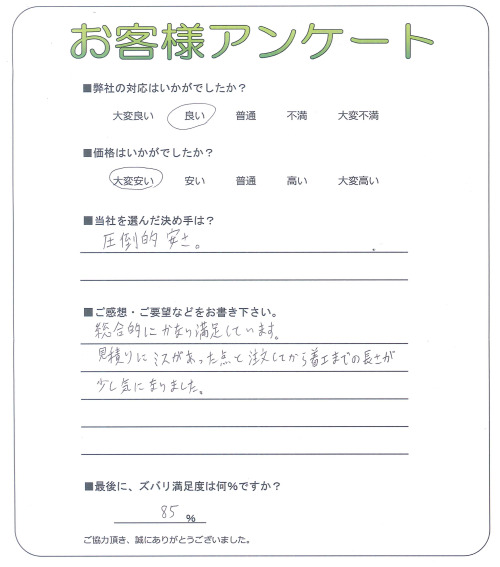 お客様アンケート
■弊社の対応はいかがでしたか？
大変良い 良い 普通 不満 大変不満
■価格はいかがでしたか？
大変安い 安い 普通 高い 大変高い
■当社を選んだ決め手は？
圧倒的安さ。
■ご感想・ご要望などをお書き下さい。
総合的にかなり満足しています。
見積りにミスがあった点と注文してから着工までの長さが
少し気になりました。
■最後に、ズバリ満足度は何%ですか？
85 %
ご協力頂き、誠にありがとうございました。